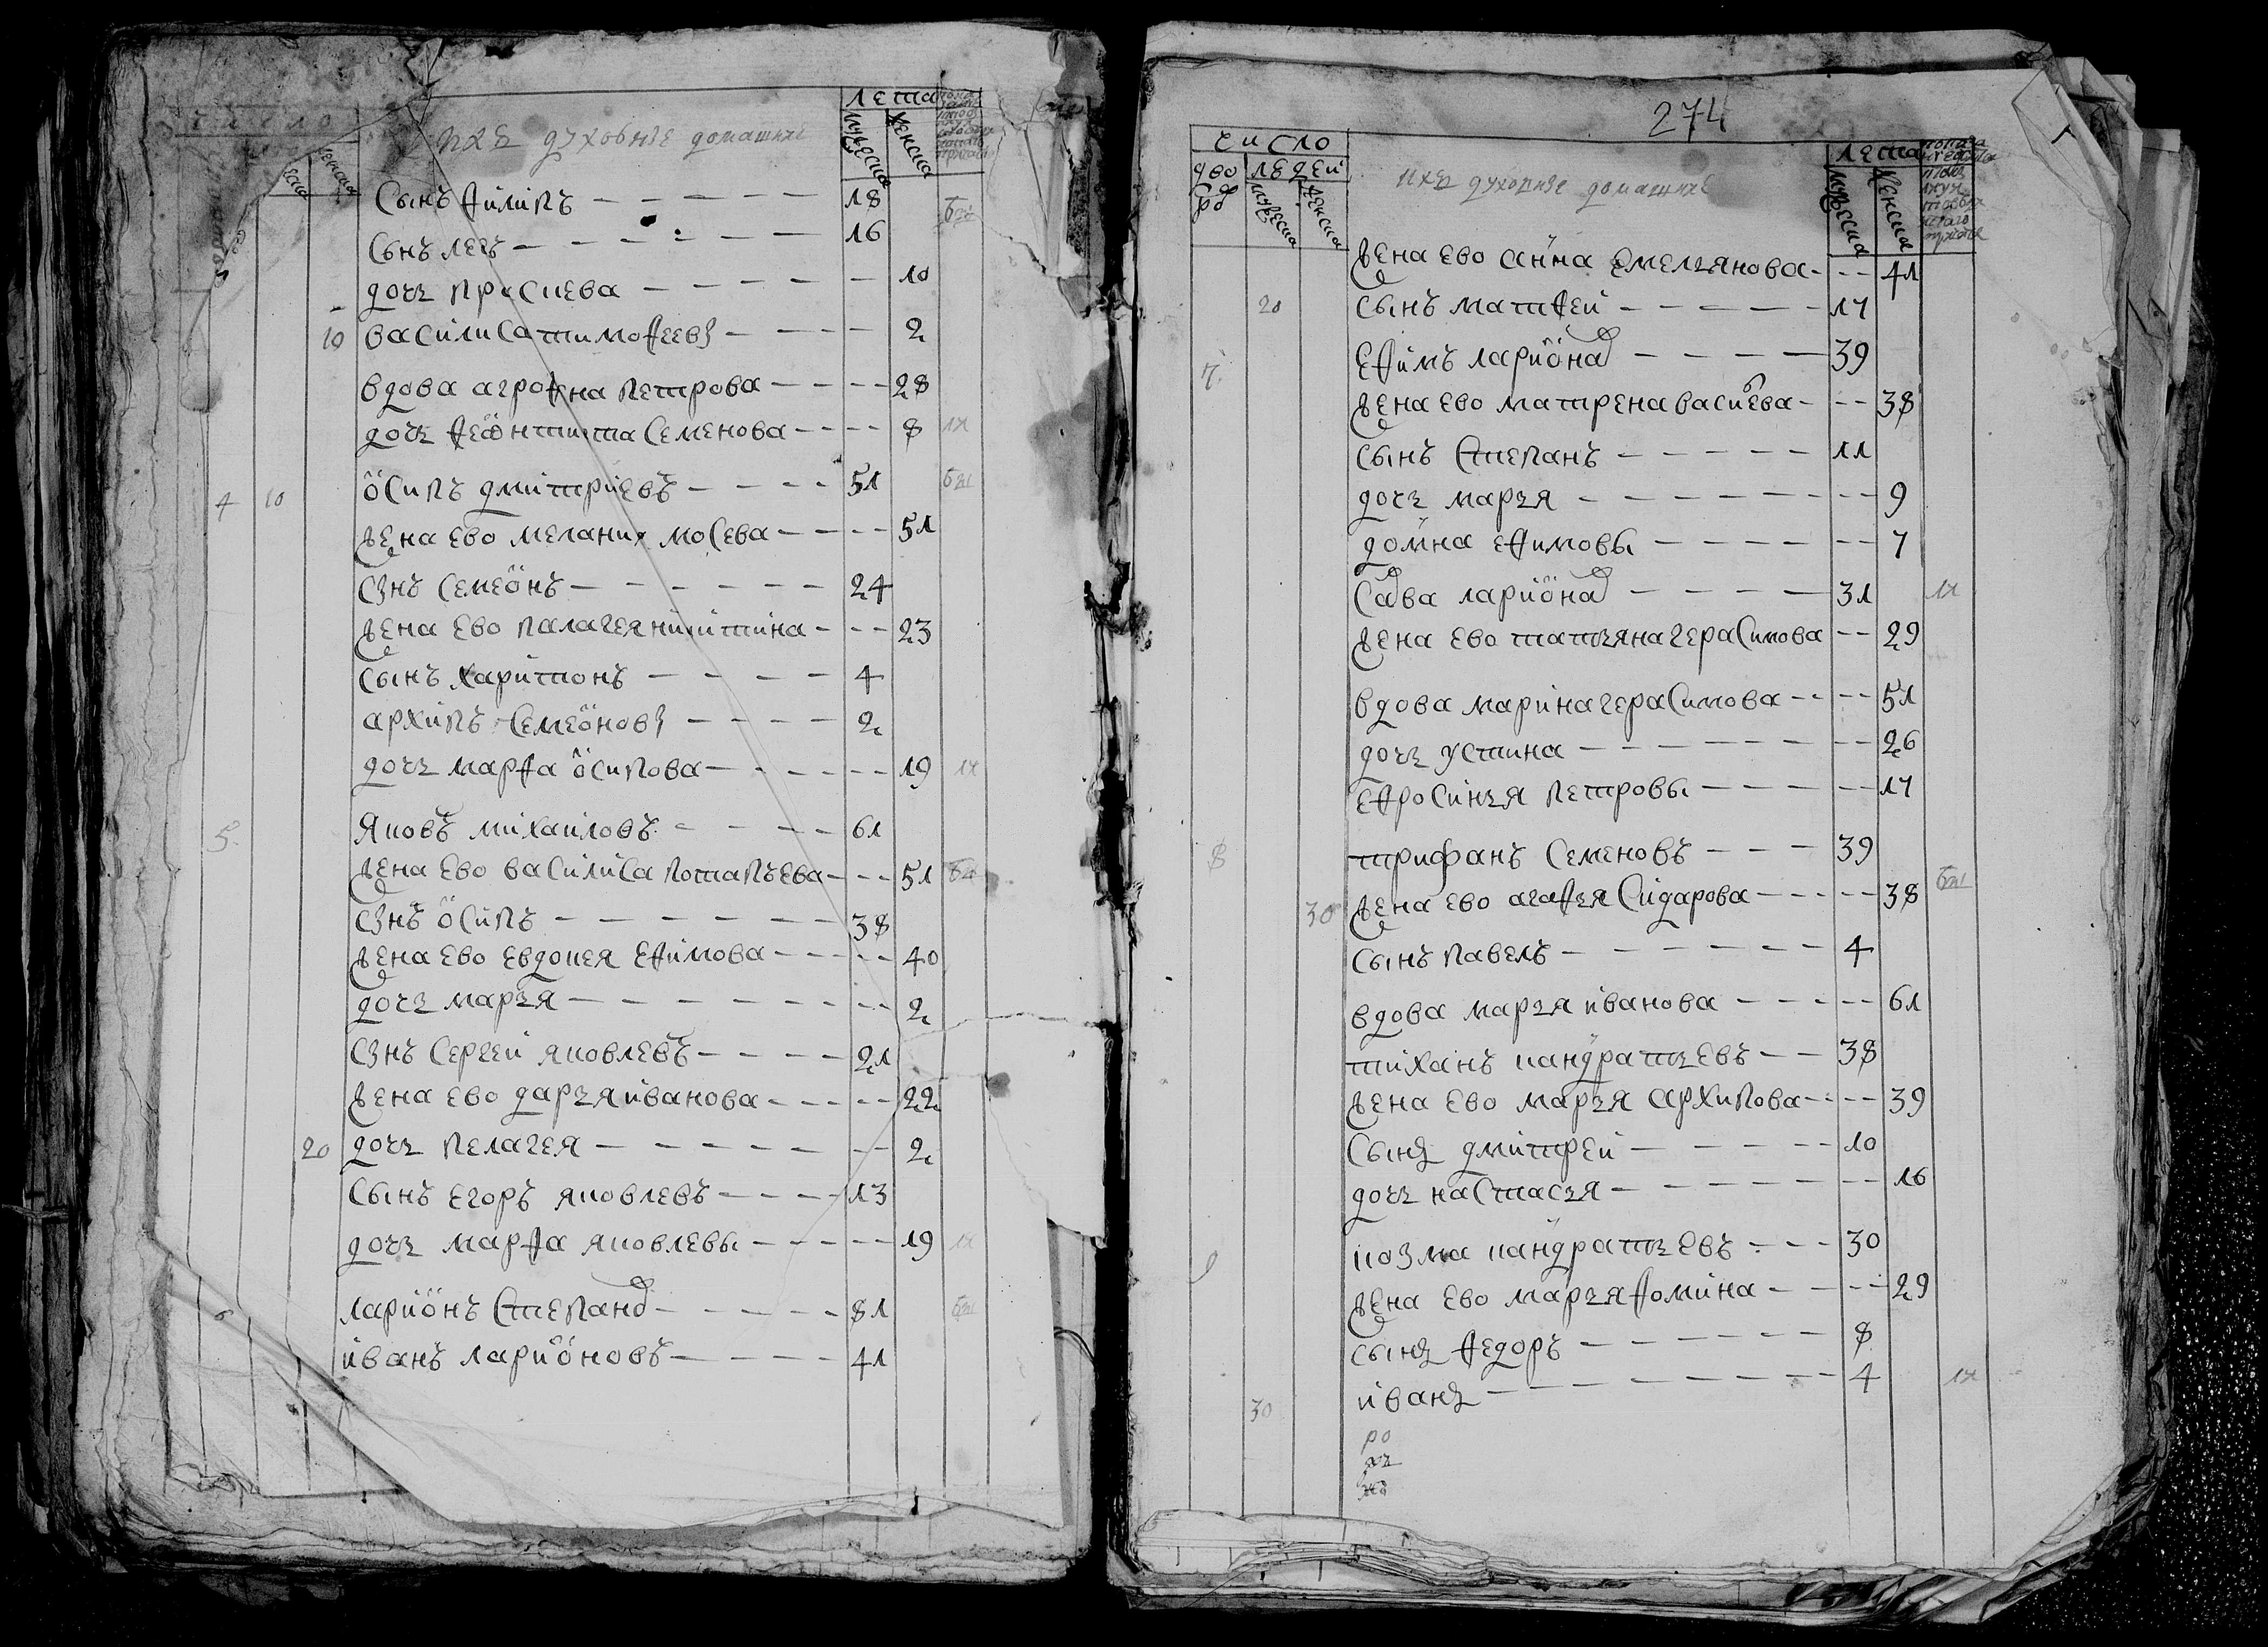 число
лета
ихъ духовные домашние
мужеска
женска
Сынъ Филипъ - - - - - 18
Сынъ левъ - - - - - 16
дочь праскева - - - - - 10
10 василиса тимофеевы - - - - 2
вдова агрофена петрова - - - - 28
дочь феѡктиста Семенова - - - - 8
4 10 ѻсипъ дмитриевъ - - - - 51
жена ево мелания мосева - - - - 51
Снъ Семеѻнъ - - - - - - 24
жена ево палагея никитина - - - 23
Сынъ харитонъ - - - - 4
архипъ Семеѻновы - - - - 2
дочь марфа ѻсипова - - - - - 19
5 яковъ михаиловъ - - - - 61
жена ево василиса потапьева - - - 51
Снъ ѻсипъ - - - - - - - 38
жена ево евдокея ефимова - - - - - 40
дочь марья - - - - - - - - 2
Снъ Сергеи яковлевъ - - - - 21
жена ево дарья иванова - - - - - 22
20 дочь пелагея - - - - - - - 2
Сынъ егоръ яковлевъ - - - - 13
дочь марфа яковлевы - - - - - 19
6 ларѻнъ Степанов - - - - - 81
иванъ лариѻновъ - - - - - 41
274
число
дворов
людей
мужеска
женска
ихъ духовные домашние
лета
мужеска
женска
жена ево анна емельянова - - - 41
20 Сынъ матфеи - - - - - - 17
7 ефимъ лариѻнов - - - - 39
жена ево матрена василева - - - 38
Сынъ Степанъ - - - - - 11
дочь марья - - - - - - - - 9
домна ефимовы - - - - - - 7
Сава лариѻнов - - - - 31
жена ево татьяна герасимова - - 29
вдова марина герасимова - - - - 51
дочь устина - - - - - - - - 26
ефросинья петровы - - - - - 17
8 трифанъ Семеновъ - - - 39
30 жена ево агафья Сидарова - - - - - 38
Сынъ павелъ - - - - - - 4
вдова марья иванова - - - - - 61
тиханъ кандратьевъ - - 38
жена ево марья архипова - - - - 39
Сынъ дмитреи - - - - - 10
дочь настасья - - - - - - - 16
9 козма кандратьевъ - - - 30
жена ево марья фомина - - - - 29
Сынъ федоръ - - - - - - 8
30 иванъ - - - - - - - - 4